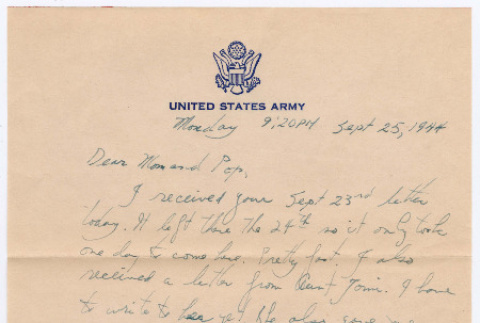 UNITED STATES ARMY
Monday 9:20PM Sept 25, 1944
Dear Mom and Pop,
I received your Sept 23rd letter
today. It left there the 24th so it only took
one day to come here. Pretty fast. I also
received a letter from Aunt I have
to write to her yet. He also gave me